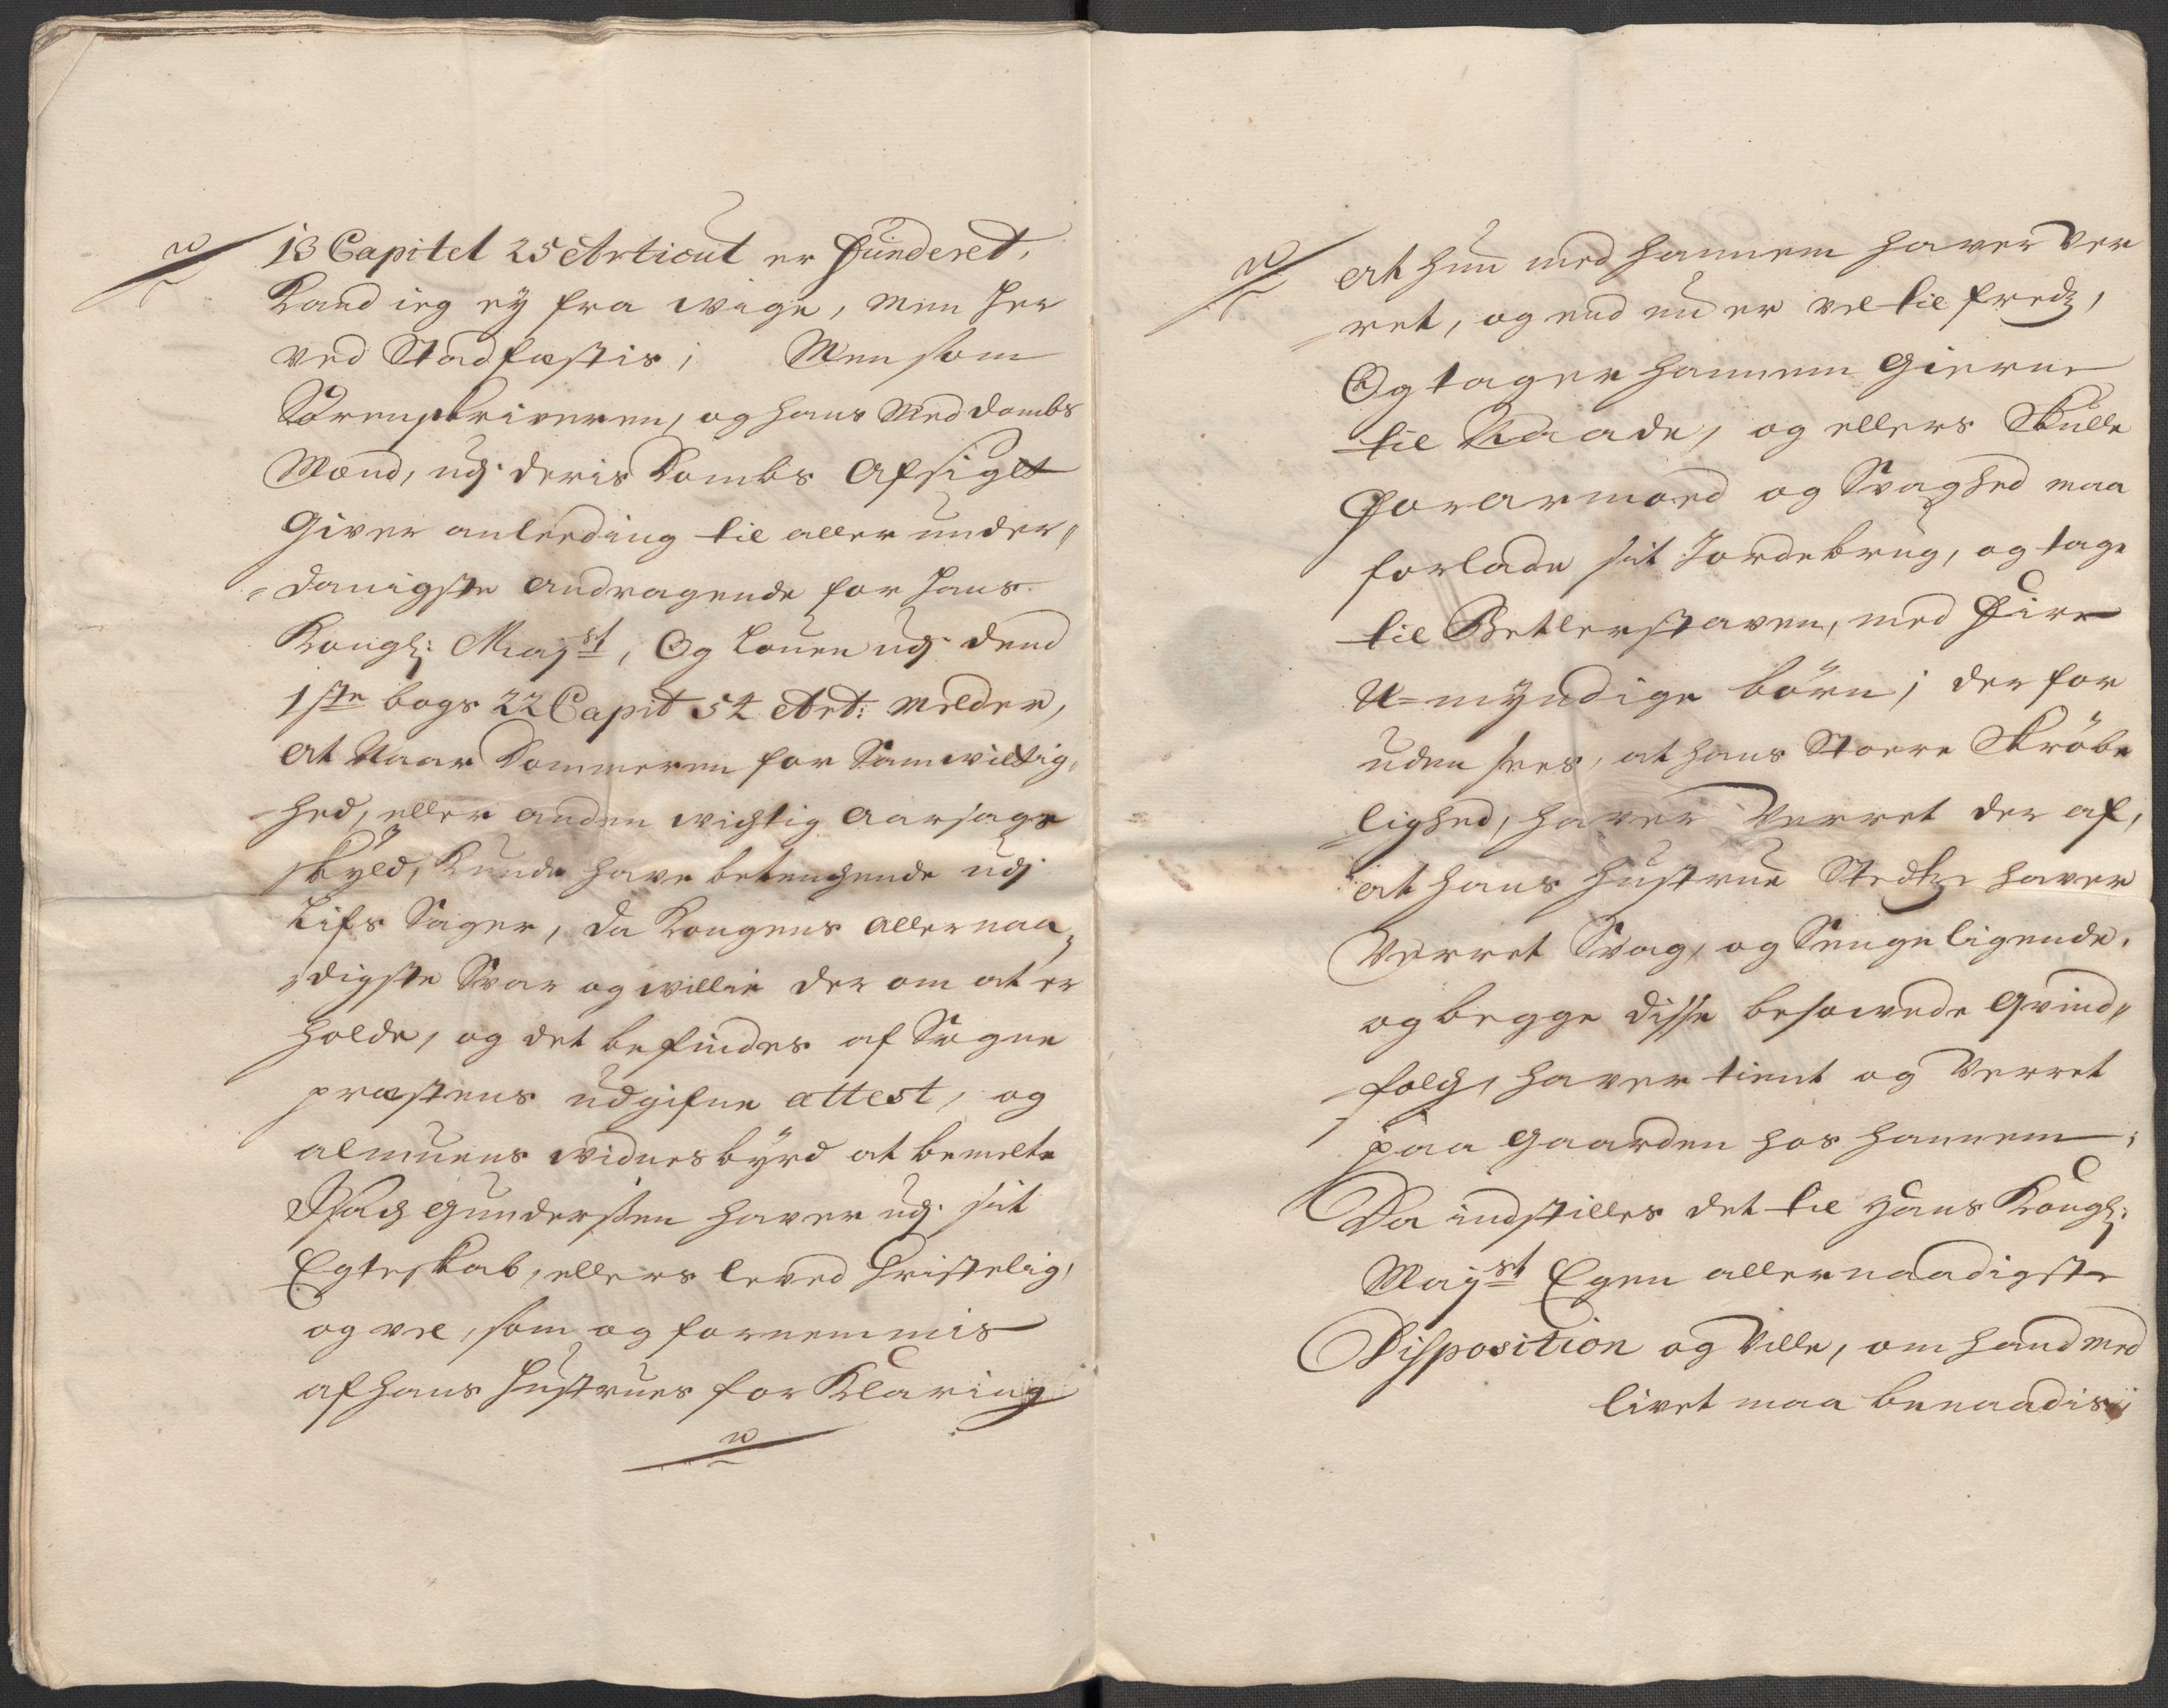 13 Capitel 25 Articul er funderet,
Kand ieg ey fra wige, men her
ved Stadfæstis; Men som
Sorenskriveren, og hans Meddombs
Mænd, udj deris Dombs Afsigt
Giver anleeding til aller under„
„danigste andragende for hans
Kongl: Mayst, Og Louen udj dend
1ste bogs 22 Capit 54 Art: melder,
At Naar Dommeren for Samwittig„
hed, eller anden wichtig Aarsags
skyld, Kunde have betenchende udj
Lifs Sager, da Kongens Allernaa„
„digste Svar og willie der om at er
holde, og det befindes af Sogne
præstens udgifne attest, og
almuens widnesbÿrd at bemelte
Isach Gundersen haver udj sit
Egteskab, ellers leved Christelig,
og vel, som og fornemmis
af hans Hustrues for Klaring
At hun med hannem haver Ver
ret, og end nu er vel til fredz,
Og tager hannem Gierne
til Naade, og ellers Skulle
for armoed og Svaghed maa
forlade sit Jordebrug, og tage
til Betlerstaven, med Fire
U-mÿndige börn; der for
uden sees, at hans Stoere Skröbe
lighed, haver Verret der af,
at hans Hustrue Stedtze haver
Verret Svag, og Sengeligende,
og begge disse besowede Qvind„
folch, haver tient og Verret
paa Gaarden hos hannem;
Da indstilles det til Hans Kongl:
Mayst Egen allernaadigste
Disposition og Ville, om hand med
livet maa benaadis;